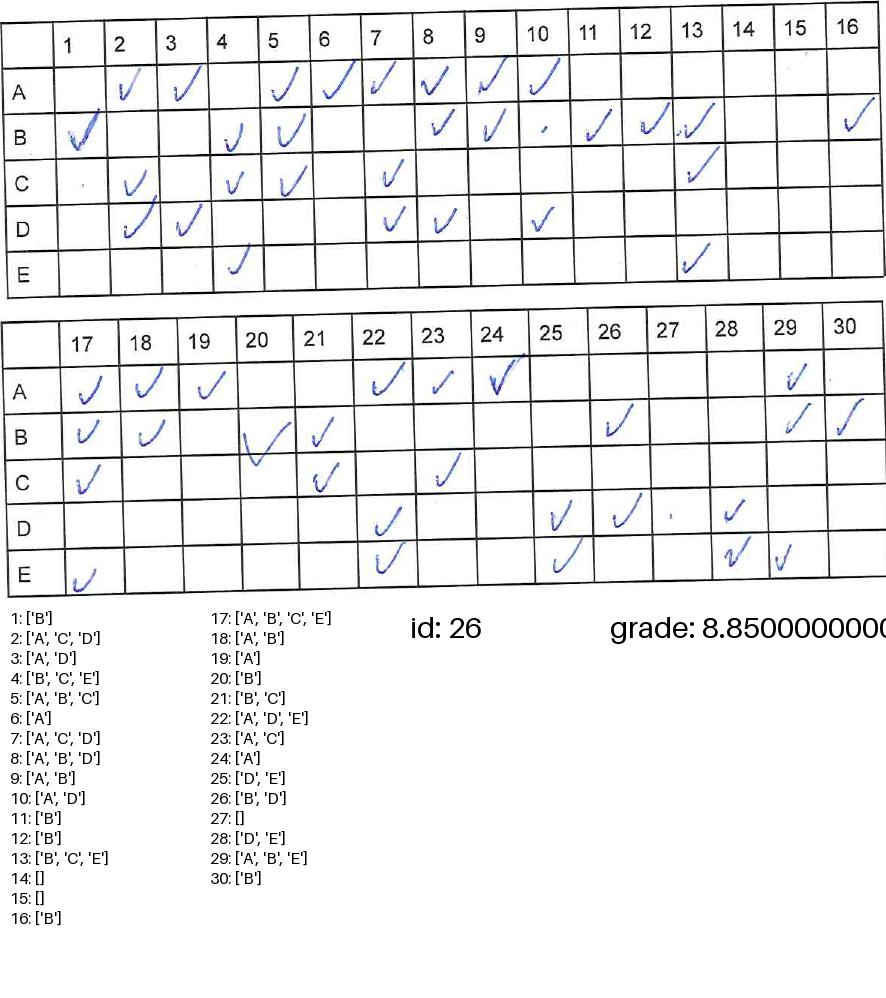 1 2 3 4 5 6 7 8 9 10 11 12 13 14 15 16
A ✓ ✓ ✓ ✓ ✓ ✓ ✓ ✓
B ✓ ✓ ✓ ✓ ✓ ✓ ✓ ✓ ✓
C ✓ ✓ ✓ ✓ ✓
D ✓ ✓ ✓ ✓ ✓
E ✓ ✓
17 18 19 20 21 22 23 24 25 26 27 28 29 30
A ✓ ✓ ✓ ✓ ✓ ✓ ✓
B ✓ ✓ ✓ ✓ ✓ ✓ ✓
C ✓ ✓ ✓
D ✓ ✓ ✓ ✓
E ✓ ✓ ✓ ✓ ✓
1: ['B']
2: ['A', 'C', 'D']
3: ['A', 'D']
4: ['B', 'C', 'E']
5: ['A', 'B', 'C']
6: ['A']
7: ['A', 'C', 'D']
8: ['A', 'B', 'D']
9: ['A', 'B']
10: ['A', 'D']
11: ['B']
12: ['B']
13: ['B', 'C', 'E']
14: []
15: []
16: ['B']
17: ['A', 'B', 'C', 'E']
18: ['A', 'B']
19: ['A']
20: ['B']
21: ['B', 'C']
22: ['A', 'D', 'E']
23: ['A', 'C']
24: ['A']
25: ['D', 'E']
26: ['B', 'D']
27: []
28: ['D', 'E']
29: ['A', 'B', 'E']
30: ['B']
id: 26
grade: 8.8500000000